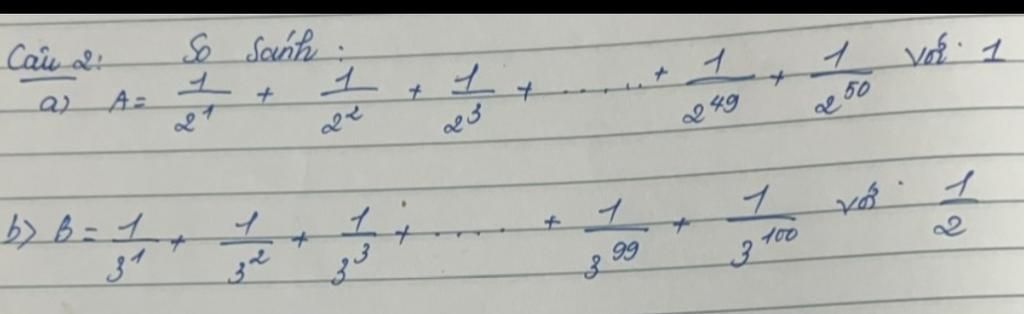 Câu 2: So sánh:
a) A = 1/2^1 + 1/2^2 + 1/2^3 + ...... + 1/2^49 + 1/2^50 với 1
b) B = 1/3^1 + 1/3^2 + 1/3^3 + ..... + 1/3^99 + 1/3^100 với 1/2